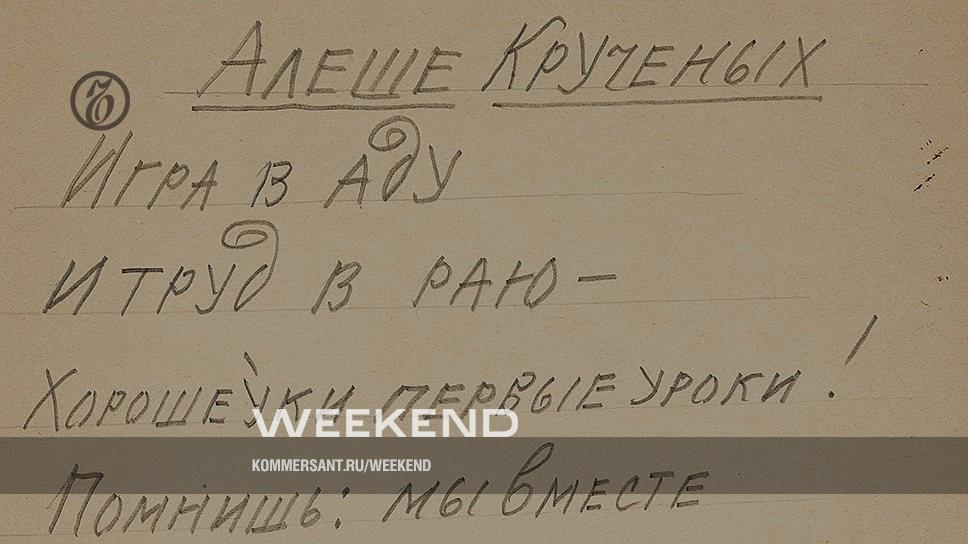 Алеше Крученых
Игра в аду
И труд в раю –
Хорошеуки первые уроки!
WEEKEND
KOMMERSANT.RU/WEEKEND
Помнишь: мы вместе